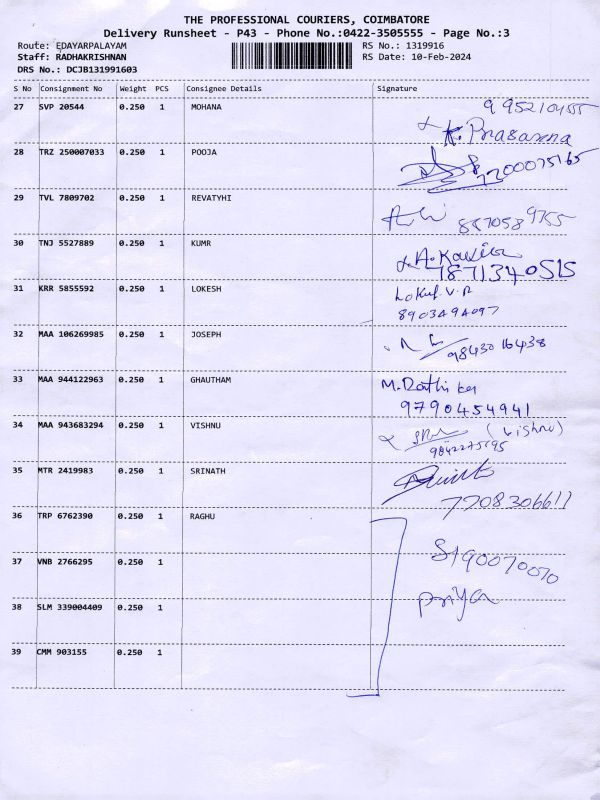 THE PROFESSIONAL COURIERS, COIMBATORE
Delivery Runsheet - P43 - Phone No.:0422-3505555 - Page No.:3
Route: EDAYARPALAYAM RS No.: 1319916
Staff: RADHAKRISHNAN RS Date: 10-Feb-2024
DRS No.: DCJB131991603
S No Consignment No Weight PCS Consignee Details Signature
27 SVP 20544 0.250 1 MOHANA 9952104555
K. Prasanna
28 TRZ 250007033 0.250 1 POOJA
7200075165
29 TVL 7809702 0.250 1 REVATYHI
8870589755
30 TNJ 5527889 0.250 1 KUMR
A. Kavin
7871340515
31 KRR 5855592 0.250 1 LOKESH V.R
8903494097
32 MAA 106269985 0.250 1 JOSEPH
9843016438
33 MAA 944122963 0.250 1 GHAUTHAM M.Rathi
9790454941
34 MAA 943683294 0.250 1 VISHNU (Vishnu)
9842275195
35 MTR 2419983 0.250 1 SRINATH
7708306611
36 TRP 6762390 0.250 1 RAGHU
37 VNB 2766295 0.250 1 8190070070
38 SLM 339004409 0.250 1 priya
39 CMM 903155 0.250 1